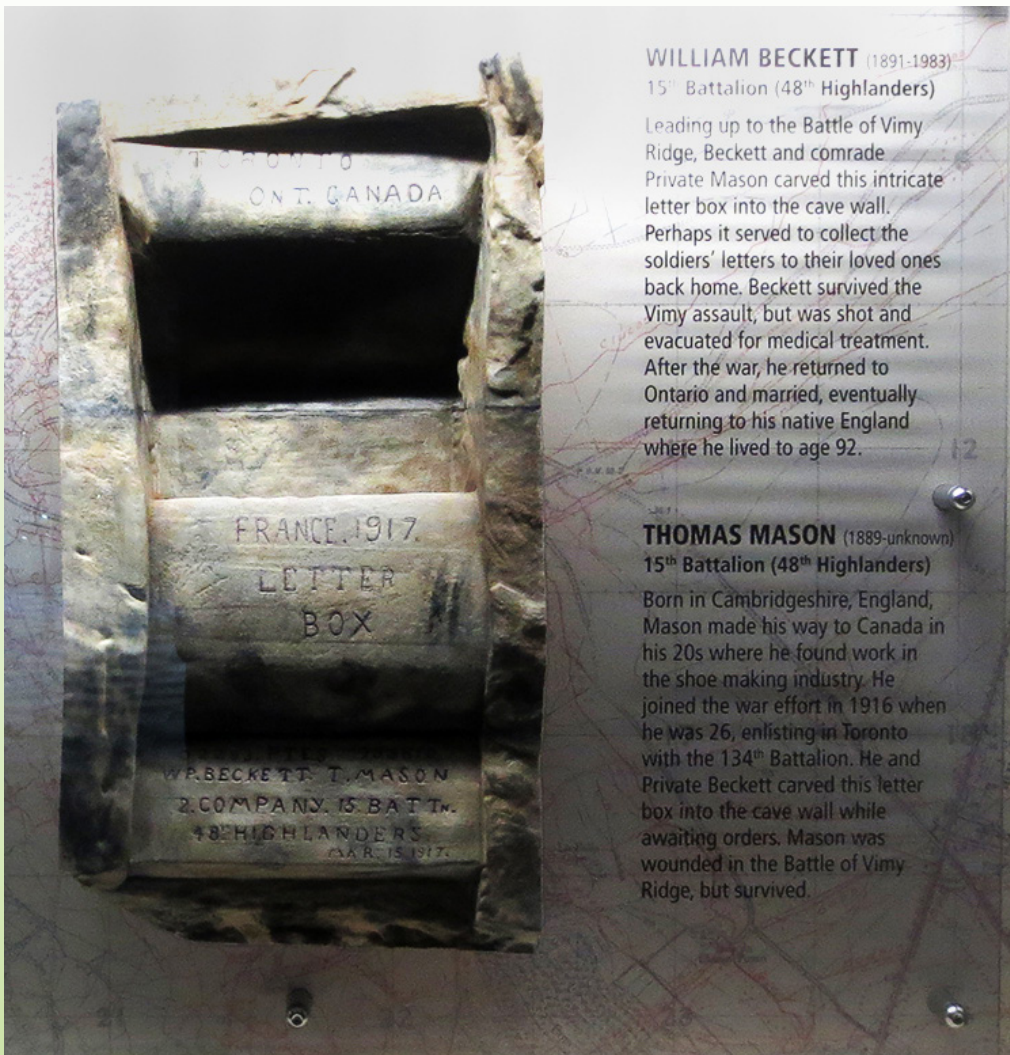 TORONTO
ONT. CANADA
FRANCE.1917.
LETTER
BOX
PTES
W.P.BECKETT. T.MASON
2.COMPANY. 15.BATTN.
48TH HIGHLANDERS.
MAR.15.1917.
WILLIAM BECKETT (1891-1983)
15th Battalion (48th Highlanders)
Leading up to the Battle of Vimy
Ridge, Beckett and comrade
Private Mason carved this intricate
letter box into the cave wall.
Perhaps it served to collect the
soldiers’ letters to their loved ones
back home. Beckett survived the
Vimy assault, but was shot and
evacuated for medical treatment.
After the war, he returned to
Ontario and married, eventually
returning to his native England
where he lived to age 92.
THOMAS MASON (1889-unknown)
15th Battalion (48th Highlanders)
Born in Cambridgeshire, England,
Mason made his way to Canada in
his 20s where he found work in
the shoe making industry. He
joined the war effort in 1916 when
he was 26, enlisting in Toronto
with the 134th Battalion. He and
Private Beckett carved this letter
box into the cave wall while
awaiting orders. Mason was
wounded in the Battle of Vimy
Ridge, but survived.
12